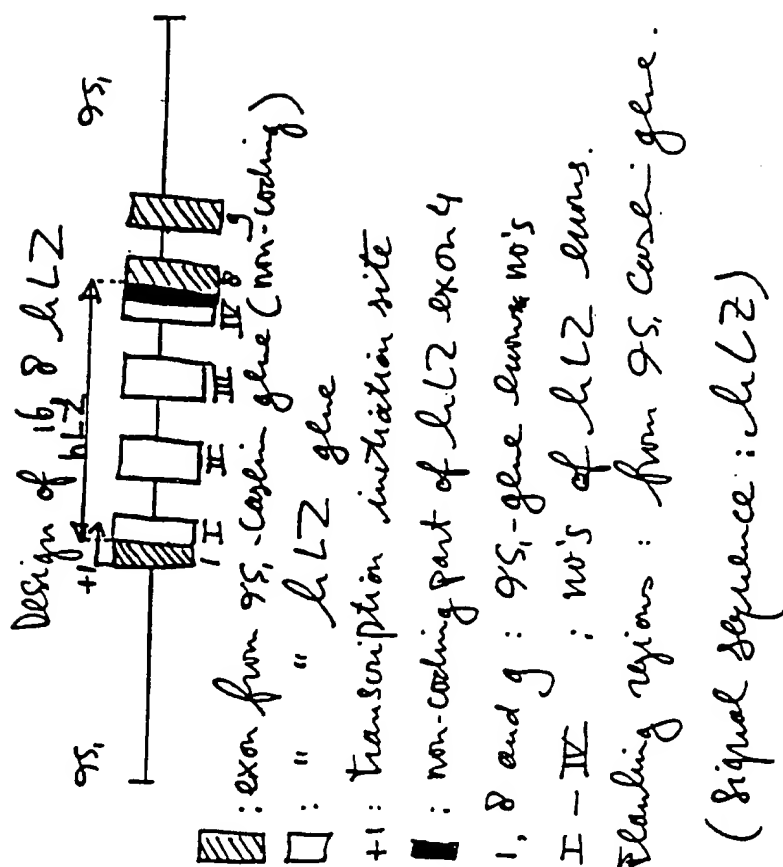 Design of 16, 8 hLZ
αS₁ +1 hLZ αS₁
1 I II III IV 8 9
: exon from αS₁-casein gene (non-coding)
: " " hLZ gene
+1: transcription initiation site
: non-coding part of hLZ exon 4
1, 8 and 9 : αS₁-gene exons no's
I-IV : no's of hLZ exons.
Flanking regions : from αS₁ casein gene.
(signal sequence : hLZ)